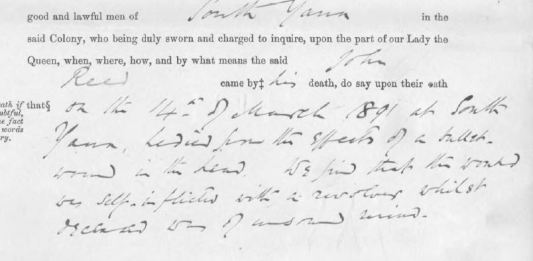 good and lawful men of South Yarra in the
said Colony, who being duly sworn and charged to inquire, upon the part of our Lady the
Queen, when, where, how, and by what means the said John
Reed came by‡ his death, do say upon their oath
that§ on the 14th of March 1891 at South
Yarra, he died from the effects of a bullet-
wound in the head. We find that the wound
was self-inflicted with a revolver, whilst
deceased was of unsound mind.
ath if
ubtful,
e fact
words
ry.